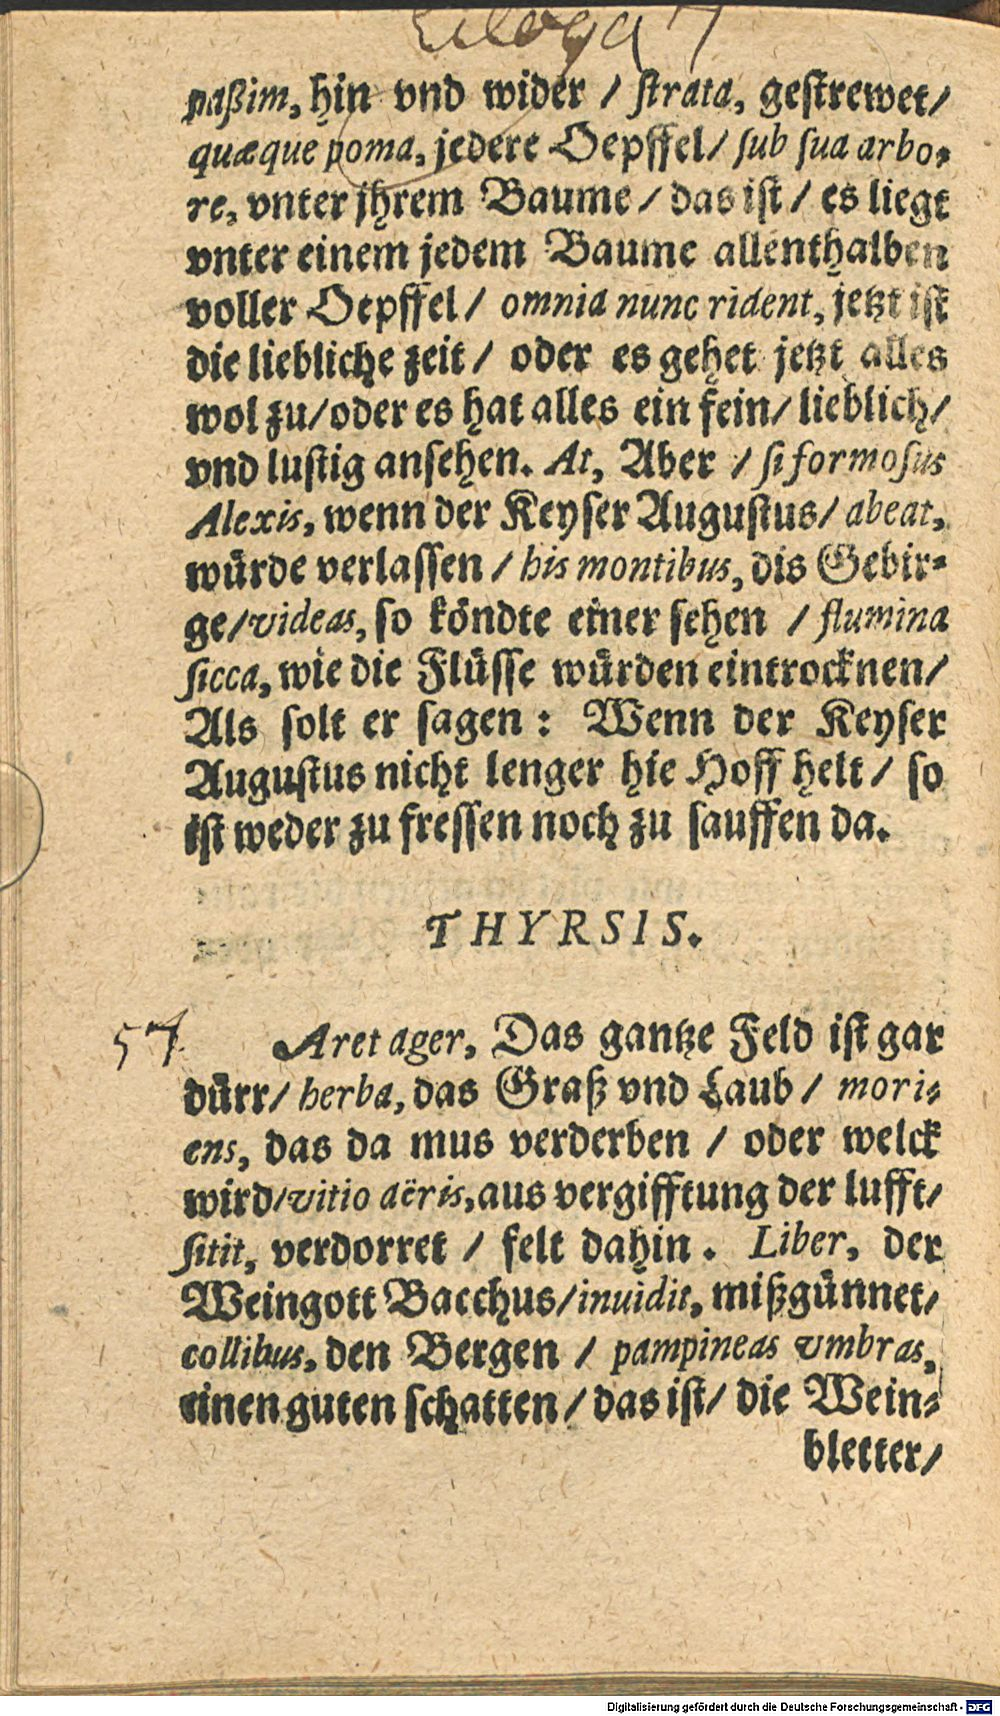 Ecloga 7
paßim, hin vnd wider / ſtrata, geſtrewet/
quæque poma, jedere Oepffel/ ſub ſua arbo-
re, vnter jhrem Baume / das iſt / es liegt
vnter einem jedem Baume allenthalben
voller Oepffel / omnia nunc rident, jetzt iſt
die liebliche zeit / oder es gehet jetzt alles
wol zu/oder es hat alles ein fein/ lieblich/
vnd luſtig anſehen. At, Aber / ſi formoſus
Alexis, wenn der Keyſer Auguſtus/ abeat,
wuͤrde verlaſſen / his montibus, dis Gebir-
ge/videas, ſo koͤndte einer ſehen / flumina
ſicca, wie die Fluͤſſe wuͤrden eintrocknen/
Als ſolt er ſagen : Wenn der Keyſer
Auguſtus nicht lenger hie Hoff helt / ſo
iſt weder zu freſſen noch zu ſauffen da.
THYRSIS.
57. Aret ager, Das gantze Feld iſt gar
duͤrr/ herba, das Graß vnd Laub / mori-
ens, das da mus verderben / oder welck
wird/vitio aëris, aus vergifftung der lufft/
ſitit, verdorret / felt dahin. Liber, der
Weingott Bacchus/inuidit, mißguͤnnet/
collibus, den Bergen / pampineas vmbras,
einen guten ſchatten / das iſt/ die Wein-
bletter/
Digitalisierung gefördert durch die Deutsche Forschungsgemeinschaft - DFG